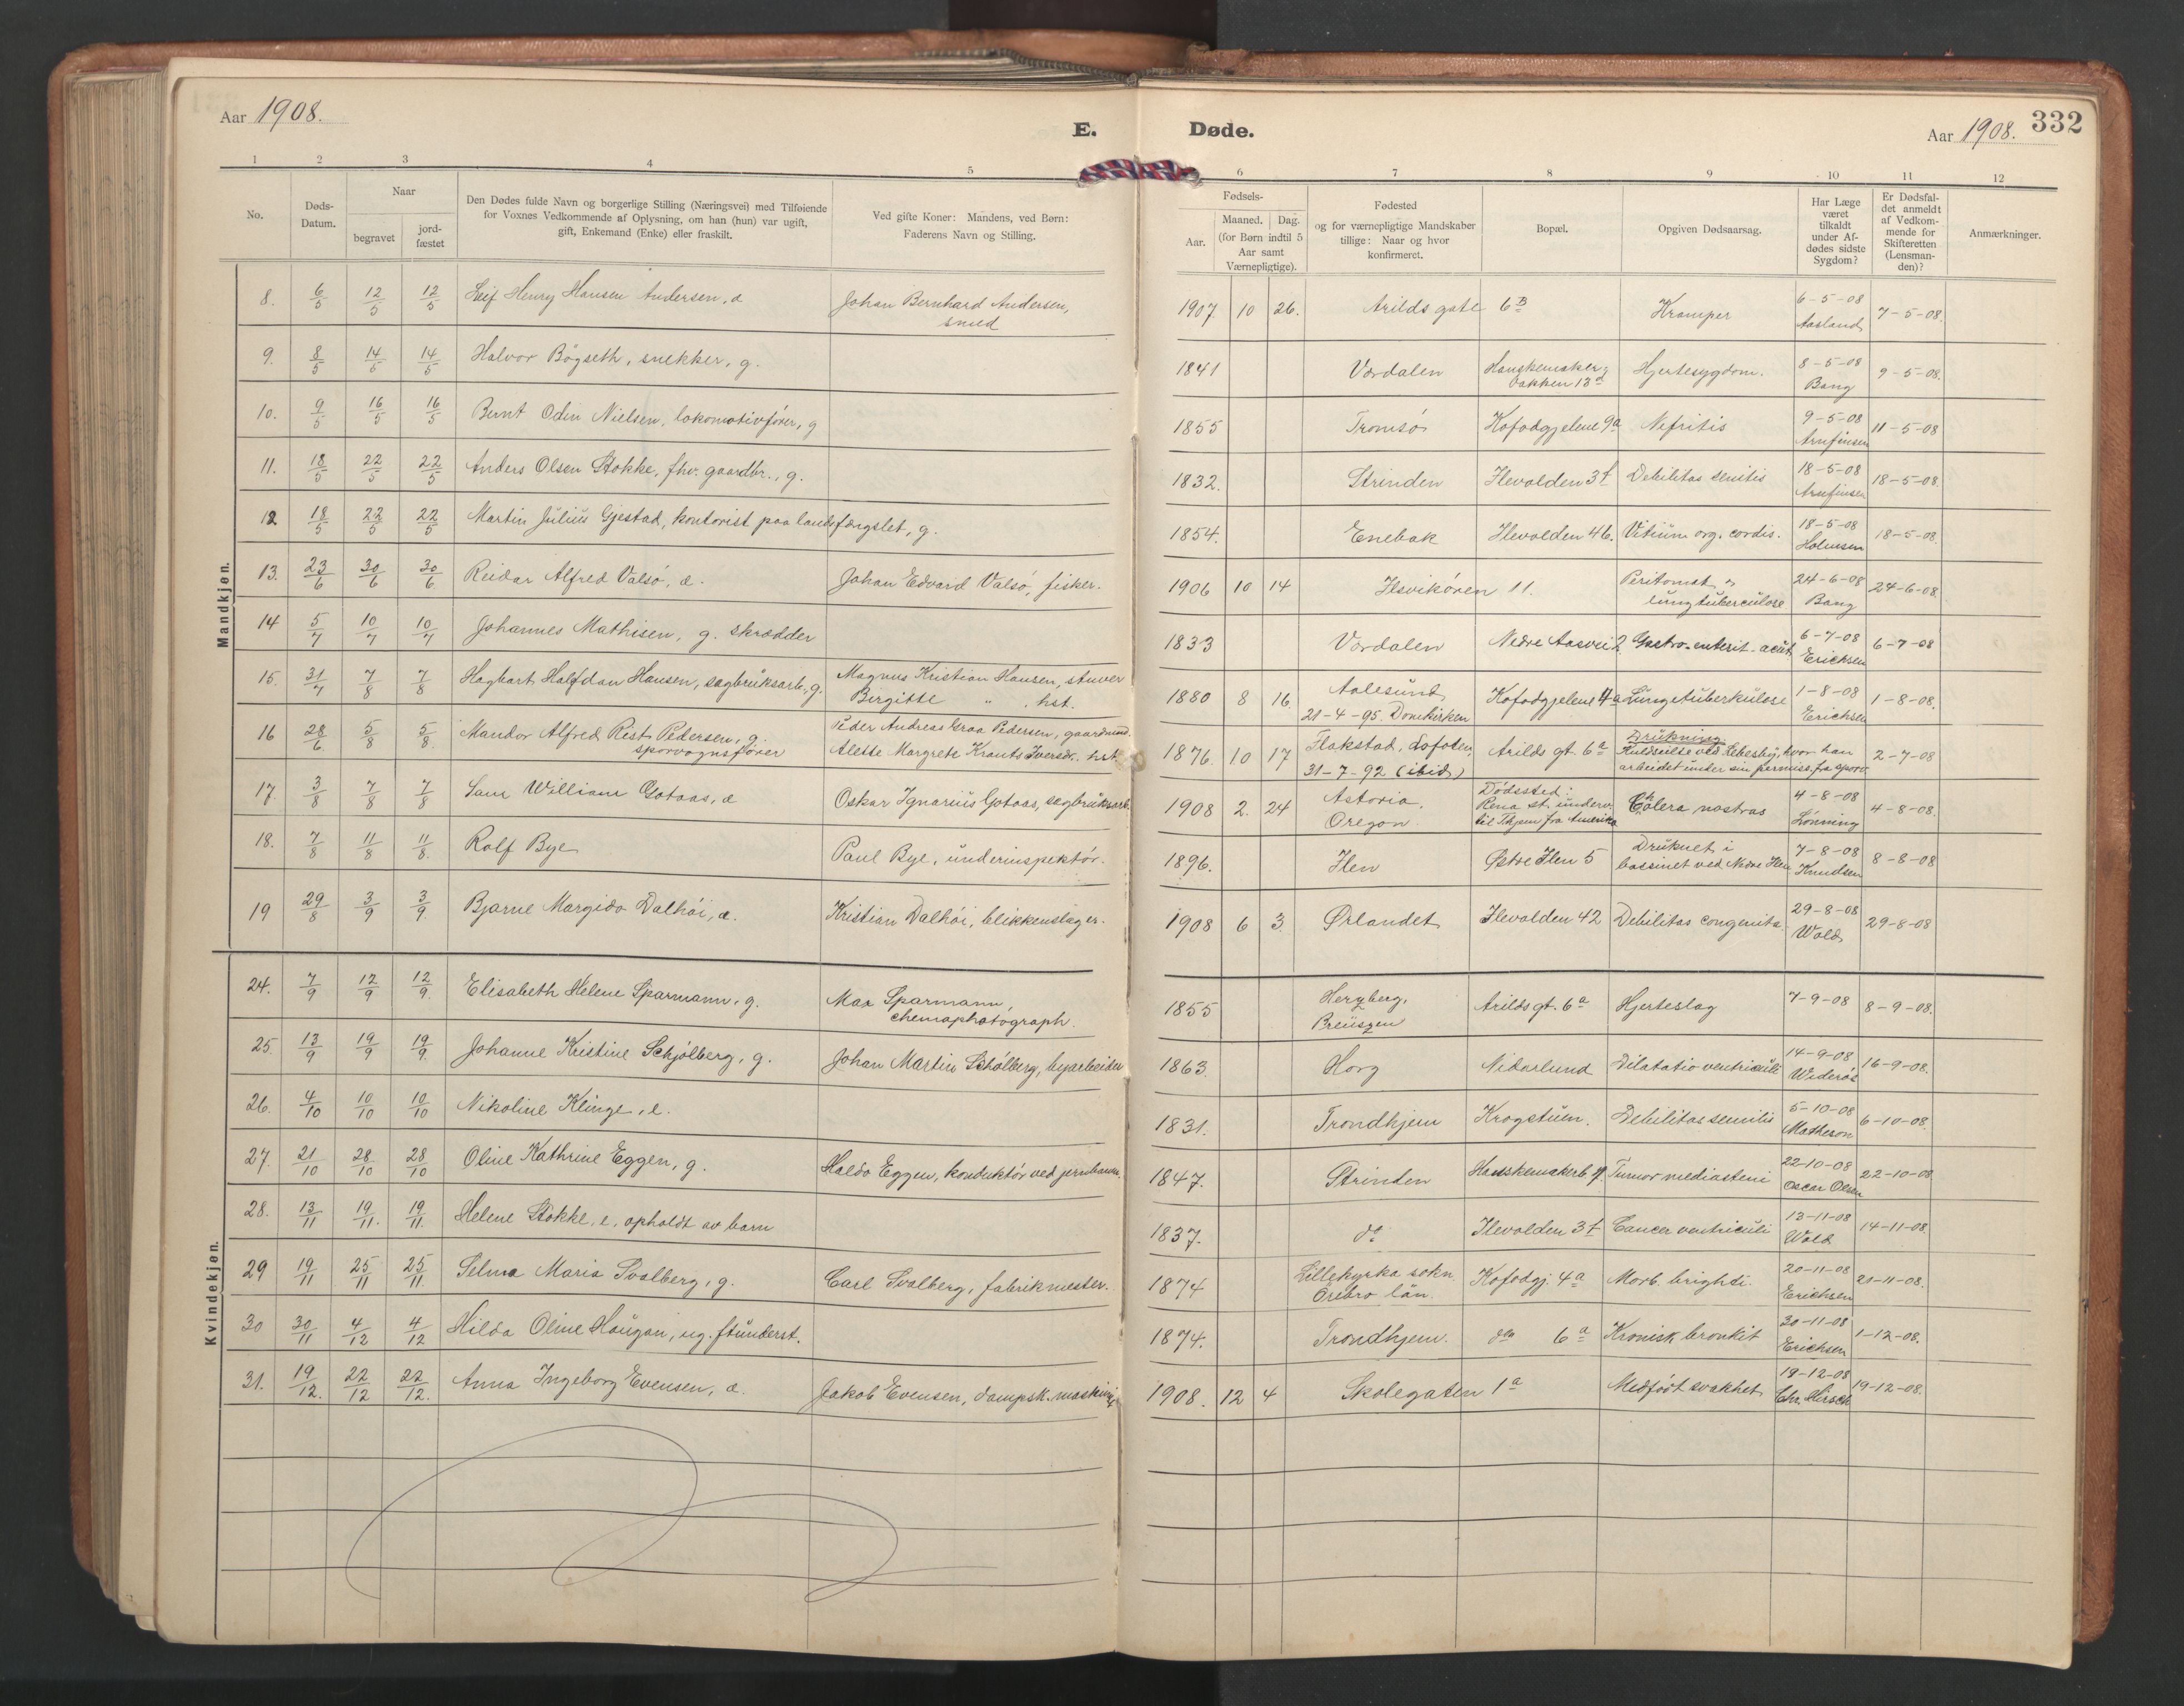 Aar 1908.
E.
Døde.
Aar 1908. 332
1 2 3 4 5 6 7 8 9 10 11 12
No.
Døds-Datum.
Naar
begravet
jord-fæstet
Den Dødes fulde Navn og borgerlige Stilling (Næringsvei) med Tilføiende
for Voxnes Vedkommende af Oplysning, om han (hun) var ugift,
gift, Enkemand (Enke) eller fraskilt.
Ved gifte Koner: Mandens, ved Børn:
Faderens Navn og Stilling.
Fødsels-
Aar.
Maaned. Dag.
(for Børn indtil 5
Aar samt
Værnepligtige).
Fødested
og for værnepligtige Mandskaber
tillige: Naar og hvor
konfirmeret.
Bopæl.
Opgiven Dødsaarsag.
Har Læge
været
tilkaldt
under Af-
dødes sidste
Sygdom?
Er Dødsfal-
det anmeldt
af Vedkom-
mende for
Skifteretten
(Lensman-
den)?
Anmærkninger.
Mandkjøn.
8. 6/5 12/5 12/5 Leif Henry Hansen Andersen, æ Johan Bernhard Andersen, smed 1907 10 26. Arilds gate 6B Kramper 6-5-08 Aasland 7-5-08.
9. 8/5 14/5 14/5 Halvor Bøgseth, snekker, g. 1841 Værdalen Hanskemaker-bakken 13a Hjertesygdom. 8-5-08 Bang 9-5-08.
10. 9/5 16/5 16/5 Bernt Odin Nielsen, lokomotivfører, g 1855 Tromsø Kofodgjelene 9a Nefritis 9-5-08 Arnfinsen 11-5-08
11. 18/5 22/5 22/5 Anders Olsen Stokke, fhv. gaardbr., g. 1832. Strinden Ilevolden 3f Debilitas senilis 18-5-08 Arnfinsen 18-5-08.
12 18/5 22/5 22/5 Martin Julius Gjestad, kontorist paa landsfængslet, g. 1854. Enebak Ilevolden 46. Vitium org. cordis. 18-5-08 Holmsen 18-5-08.
13. 23/6 30/6 30/6 Reidar Alfred Valsø, æ. Johan Edvard Valsø, fisker. 1906 10 14 Ilsvikøren 11. Peritonit. & lungtuberculose 24-6-08 Bang 24-6-08.
14 5/7 10/7 10/7 Johannes Mathisen, g. skrædder 1833 Værdalen Nedre Aasvei 2. Gastro-enterit-acut. 6-7-08 Erichsen 6-7-08
15. 31/7 7/8 7/8 Hagbart Halfdan Hansen, sagbruksarb., g. Magnus Kristian Hansen, stuver Birgitte " , hst. 1880 8 16. Aalesund 21-4-95. Domkirken Kofodgjelene 4a Lungetuberkulose 1-8-08 Erichsen 1-8-08.
16 28/6 5/8 5/8. Mandor Alfred Rist Pedersen, g. sporvognsfører Peder Andreas Graa Pedersen, gaardmand. Alette Margrete Krantz Iversdr. hst. 1876. 10 17 Flakstad, Lofoten, 31-7-92 (ibid) Arilds gt. 6a Drukning. Kuldseilse ved Lebesby, hvor han arbeidet under sin permiss. fra sporv. 2-7-08
17. 3/8 7/8 7/8 Sam William Gotaas, æ Oskar Ignarius Gotaas, sagbruksarb. 1908 2. 24 Astoria, Oregon Dødssted: Rena st. underv. til Thjem fra Amerika Cholera nostras 4-8-08 Lønning 4-8-08.
18. 7/8 11/8 11/8. Rolf Bye Paul Bye, underinspektør. 1896. Ilen Østre Ilen 5 Druknet i bassinet ved Nedre Ilen 7-8-08 Knudsen 8-8-08
19 29/8 3/9 3/9. Bjarne Margido Dalhøi, æ. Kristian Dalhøi, blikkenslager. 1908 6 3. Ørlandet Ilevolden 42 Debilitas congenita 29-8-08 Wold 29-8-08
Kvindekjøn.
24. 7/9 12/9 12/9. Elisabeth Helene Sparmann, g. Max Sparmann, chemaphotograph. 1855 Arilds gt. 6a Hjerteslag 7-9-08 8-9-08.
25. 13/9 19/9 19/9. Johanne Kristine Schjølberg, g. Johan Martin Schølberg, byarbeider 1863. Horg Nidarlund Dilatatio ventriculi 14-9-08 Widerøe 16-9-08.
26. 4/10 10/10 10/10 Nikoline Klinge, e. 1831. Trondhjem Krogstuen. Debilitas senilis 5-10-08 Matheson 6-10-08.
27. 21/10 28/10 28/10 Oline Kathrine Eggen, g. Haldo Eggen, konduktør ved jernbanen. 1847. Strinden Hanskemakerb. Tumor mediasteni 22-10-08 Oscar Olsen 22-10-08
28. 13/11 19/11. 19/11. Helene Stokke, e, opholdt av barn 1837. do Ilevolden 3f Cancer ventriculi 13-11-08 Wold 14-11-08.
29 19/11 25/11 25/11. Selma Maria Svalberg, g. Carl Svalberg, fabrikmester. 1874 Lillekyrka sokn Örebro län. Kofodgj. 4a Morb. brighti. 20-11-08 Erichsen 21-11-08.
30 30/11 4/12 4/12 Hilda Oline Haugan, ug. ftunderst. 1874. Trondhjem. do 6a Kronisk bronkit 30-11-08 Erichsen 1-12-08.
31. 19/12. 22/12 22/12. Anna Ingeborg Evensen, æ. Jakob Evensen, dampsk. maskinist 1908. 12 4 Skolegaten 1a Medfødt svakhet 19-12-08 Chr. Hirsch 19-12-08.